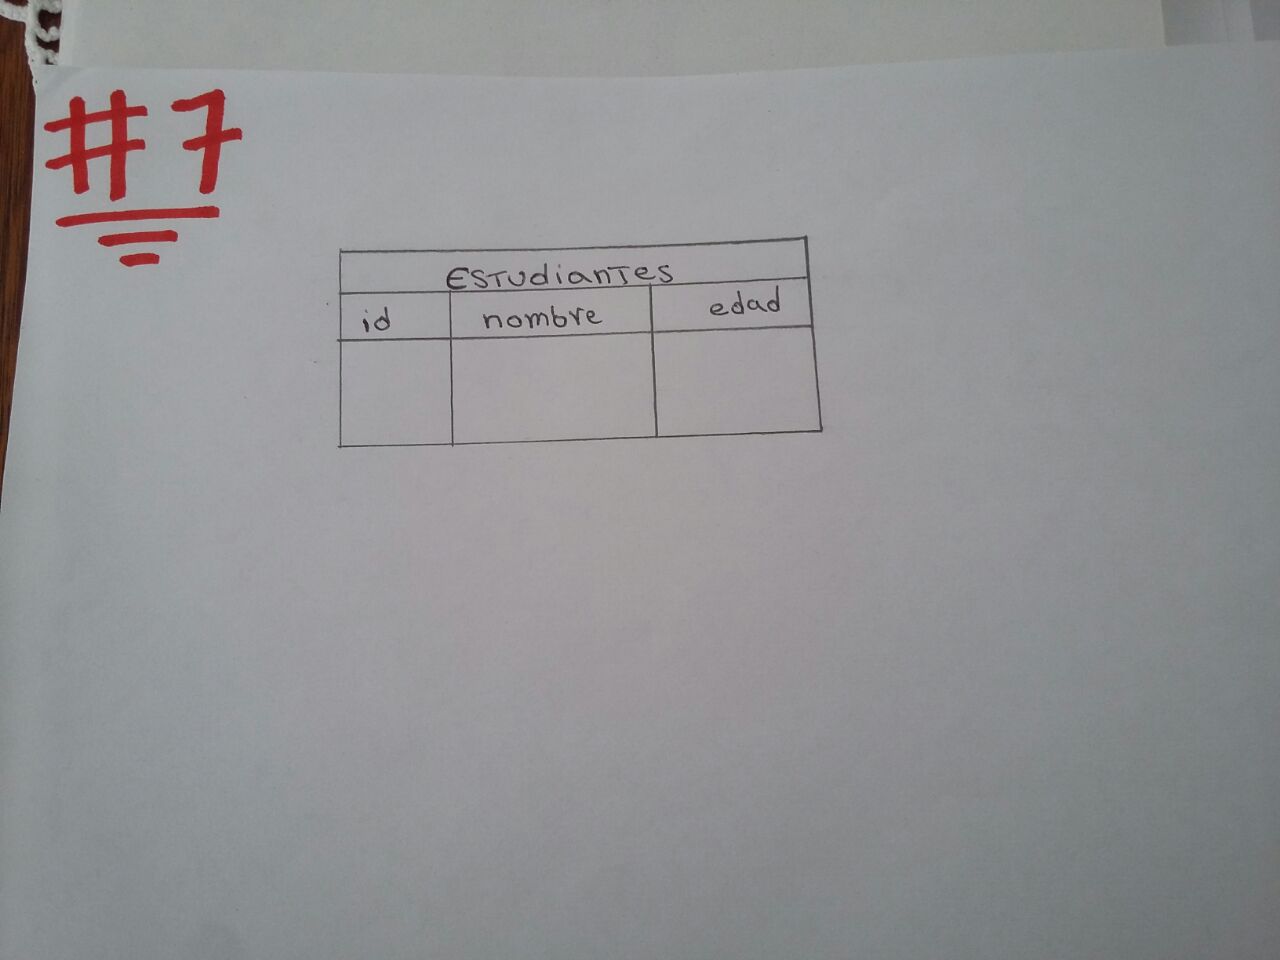 #7
ESTudianTes
id nombre edad